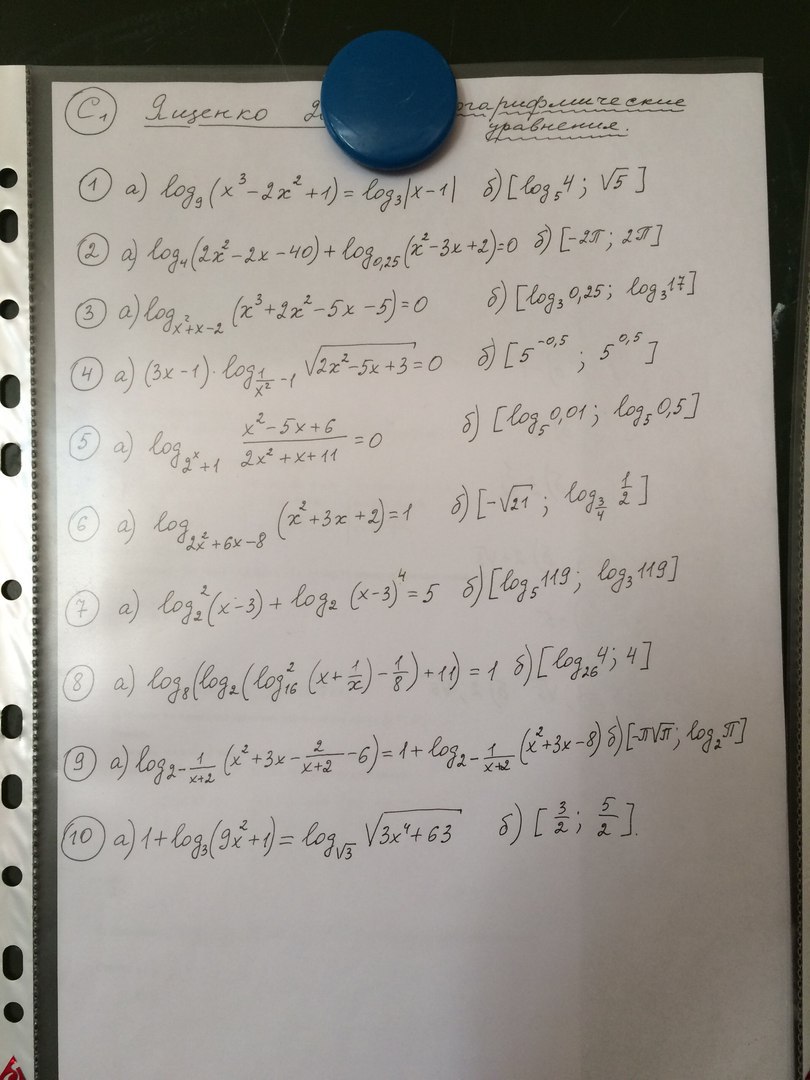 C₁ Ященко огарифмические
уравнения.
1 а) log₉(x³-2x²+1) = log₃|x-1| б) [log₅4; √5]
2 а) log₄(2x²-2x-40) + log₀,₂₅(x²-3x+2)=0 б) [-2π; 2π]
3 а) log_{x²+x-2} (x³+2x²-5x-5)=0 б) [log₃0,25; log₃17]
4 а) (3x-1)·log_{1/x² -1} √(2x²-5x+3)=0 б) [5^{-0,5}; 5^{0,5}]
5 а) log_{2^x+1} (x²-5x+6)/(2x²+x+11) =0 б) [log₅0,01; log₅0,5]
6 а) log_{2x²+6x-8} (x²+3x+2)=1 б) [-√21; log_{3/4} 1/2]
7 а) log₂²(x-3) + log₂ (x-3)⁴ = 5 б) [log₅119; log₃119]
8 а) log₈(log₂(log²₁₆ (x+1/x) - 1/8) + 11) = 1 б) [log₂₆4; 4]
9 а) log_{2-1/(x+2)} (x²+3x-2/(x+2)-6) = 1+log_{2-1/(x+2)} (x²+3x-8) б) [-π√π; log₂π]
10 а) 1+log₃(9x²+1) = log_{√3} √(3x⁴+63) б) [3/2; 5/2].